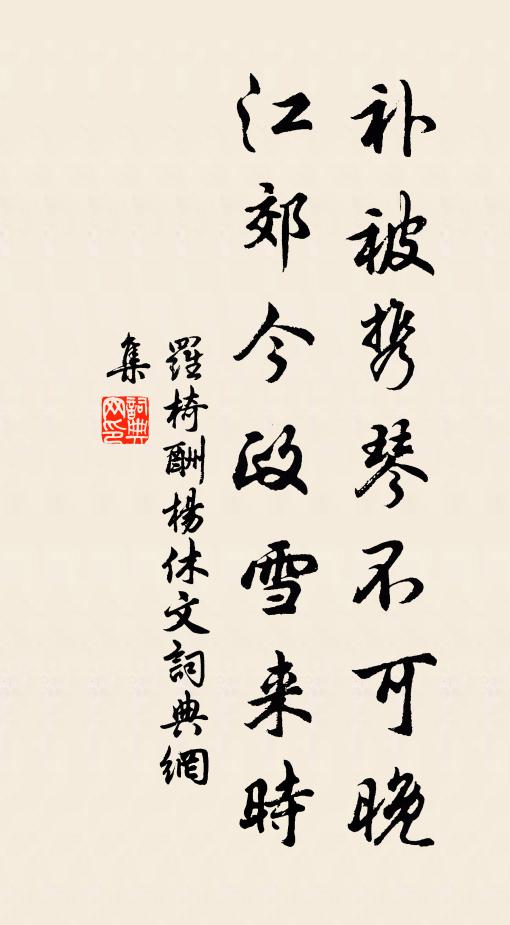 补被携琴不可晚
江郊今政雪来時
羅椅酬楊休文詞典網
集
詞典網印